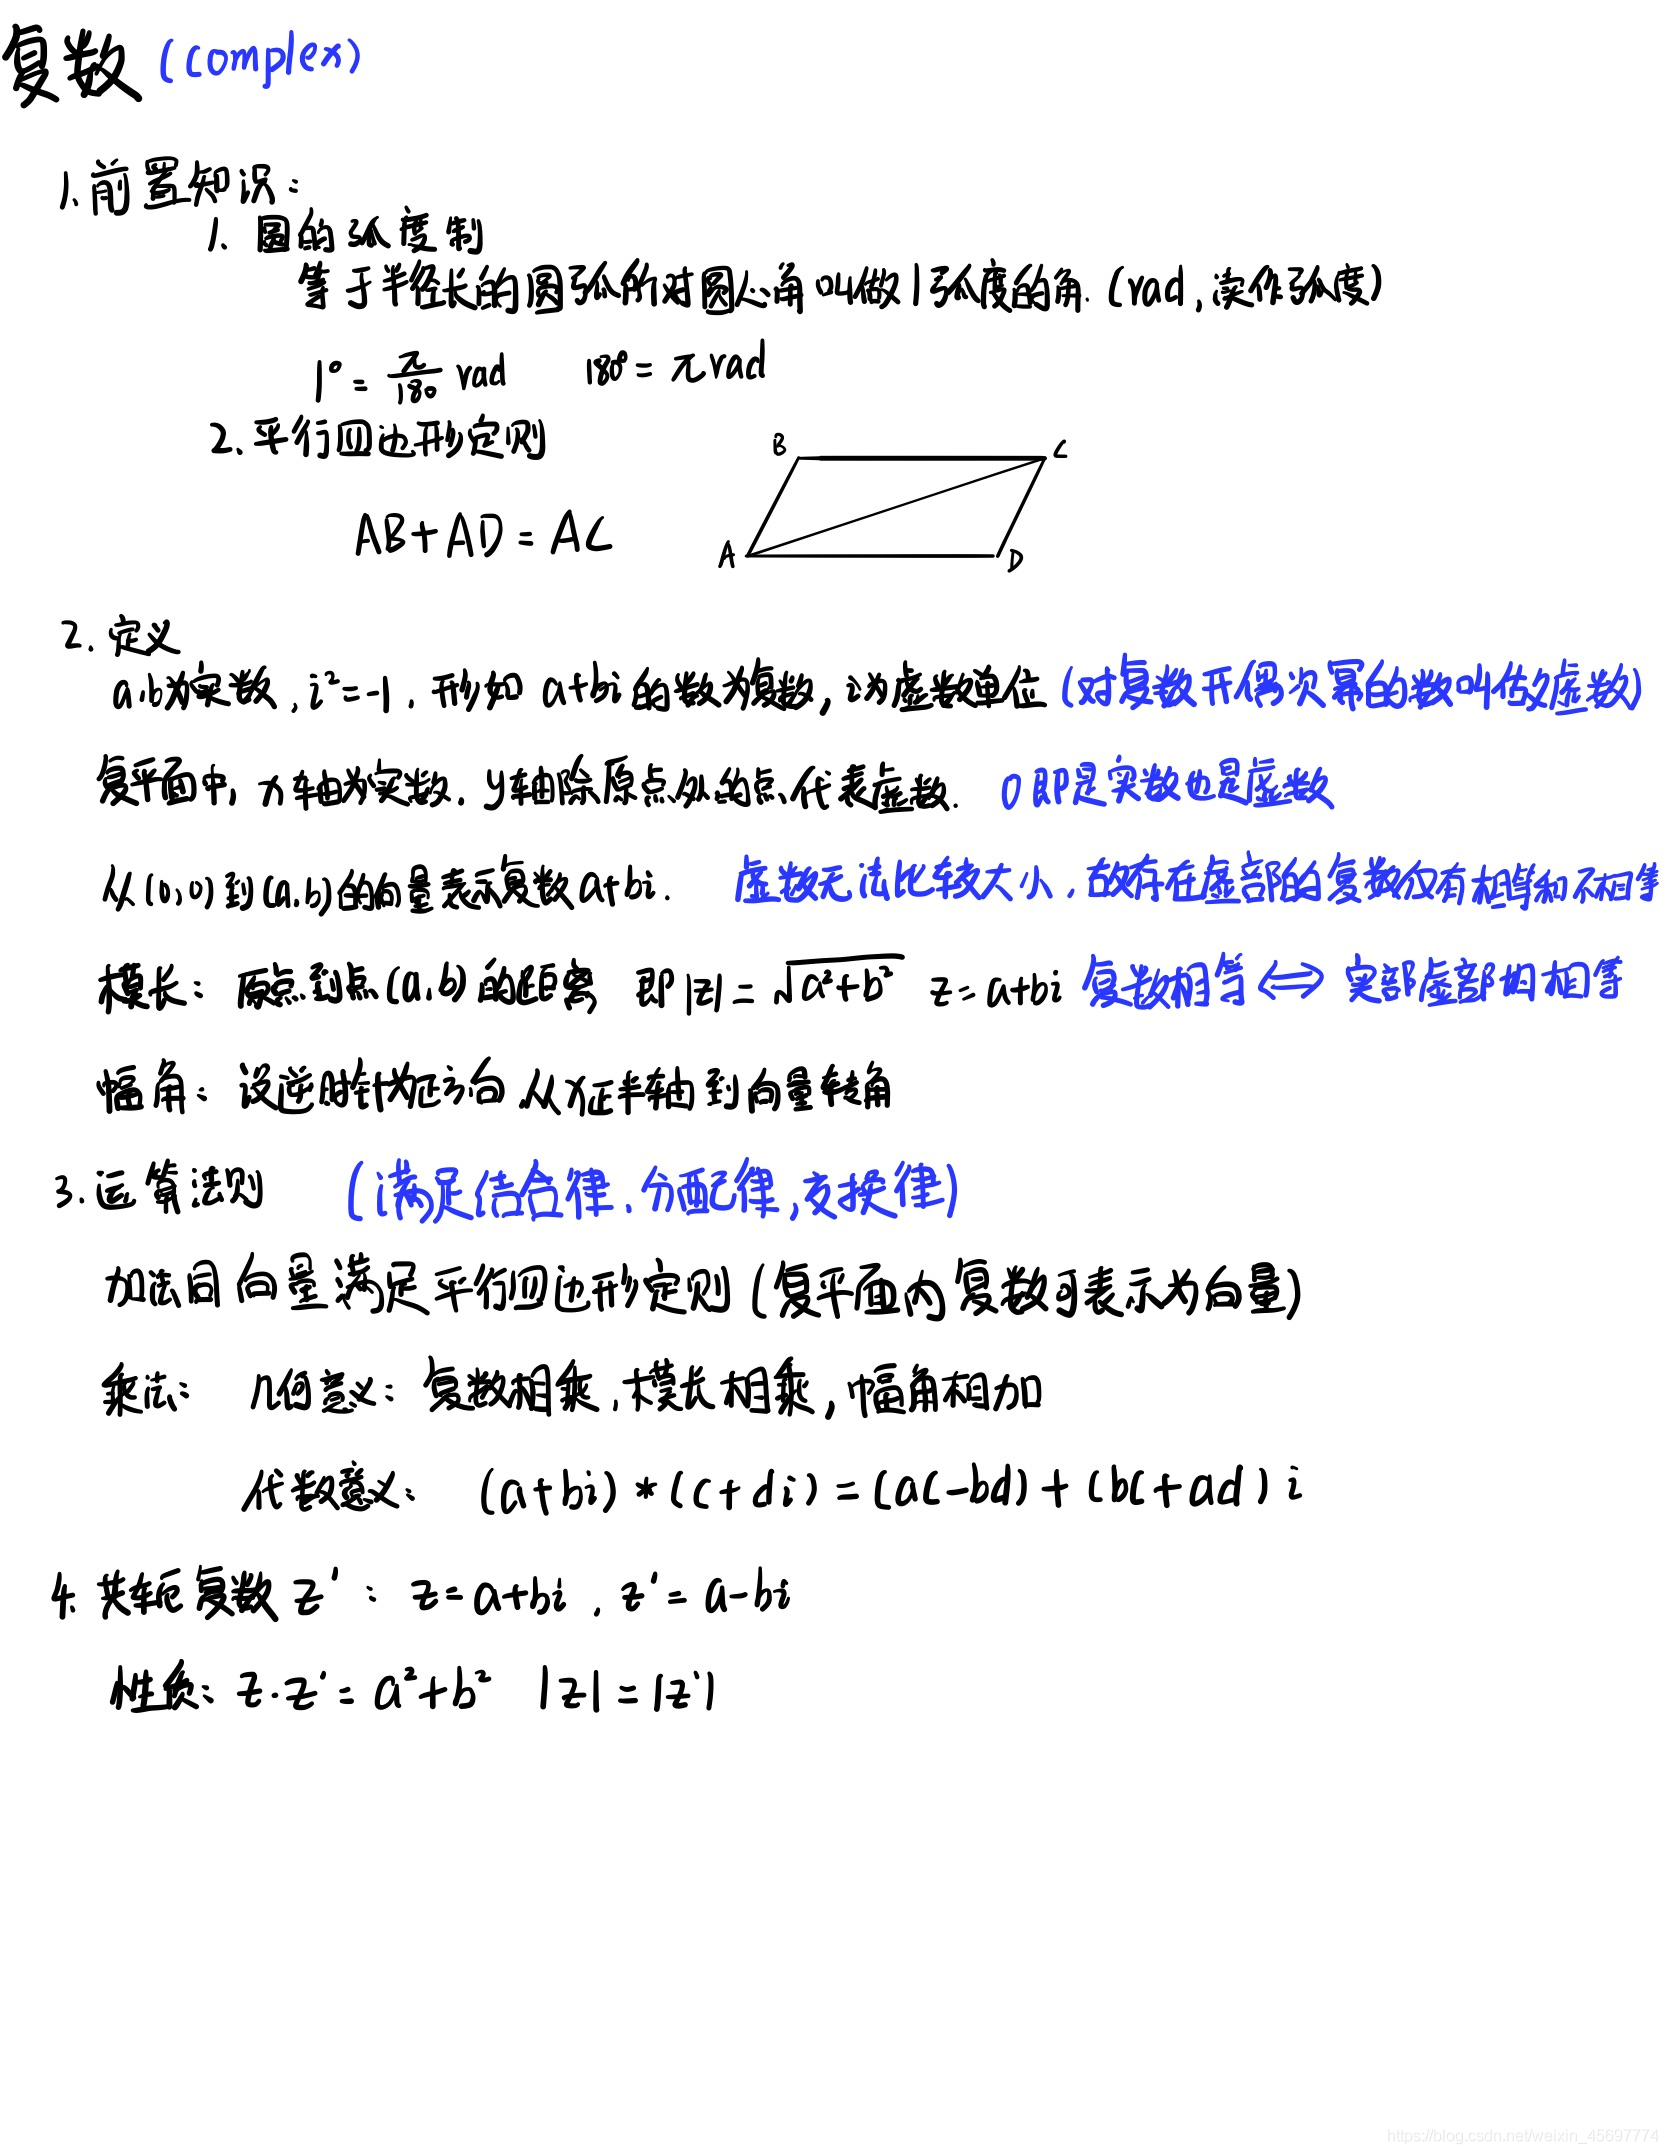 复数 (complex)
1. 前置知识:
1. 圆的弧度制
等于半径长的圆弧所对圆心角叫做1弧度的角. (rad, 读作弧度)
1° = π/180 rad 180° = π rad
2. 平行四边形定则
B C
AB+AD = AC
A D
2. 定义
a.b为实数, i²=-1, 形如 a+bi 的数为复数, i为虚数单位 (对复数开偶次幂的数叫做虚数)
复平面中, x轴为实数. y轴除原点外的点代表虚数. 0即是实数也是虚数
从(0,0)到(a.b)的向量表示复数a+bi. 虚数无法比较大小, 故存在虚部的复数仅有相等和不相等
模长: 原点到点(a,b)的距离 即|z| = √a²+b² z=a+bi 复数相等 ⇔ 实部虚部均相等
幅角: 设逆时针为正方向 从x正半轴到向量转角
3. 运算法则 (满足结合律, 分配律, 交换律)
加法同向量满足平行四边形定则 (复平面内复数可表示为向量)
乘法: 几何意义: 复数相乘, 模长相乘, 幅角相加
代数意义: (a+bi) * (c+di) = (ac-bd) + (bc+ad) i
4. 共轭复数 z' : z=a+bi , z'=a-bi
性质: z·z' = a²+b² |z| = |z'|
https://blog.csdn.net/weixin_45697774